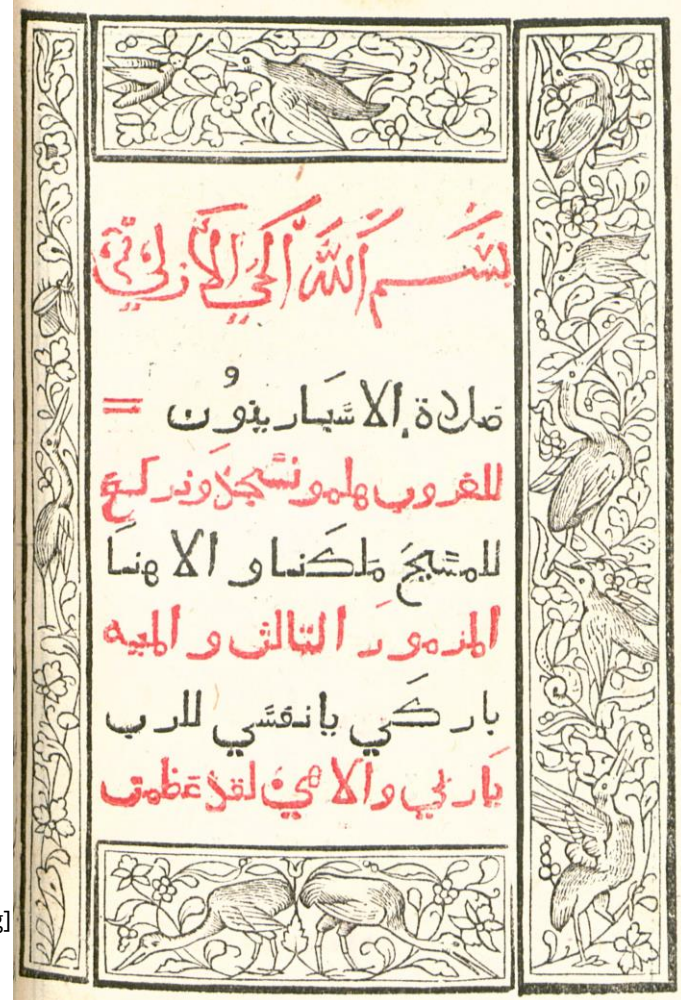 بِسْمِ اللّٰه الْحَيِّ الْأَزَلِيِّ
صلاة الاسبارينون =
للغروب هلمو نسجد ونركع
للمسيح ملكنا و الاهنا
المزمور التالت و الميه
باركي يا نفسي للرب
يا ربي والاهي لقد عظمت
g]